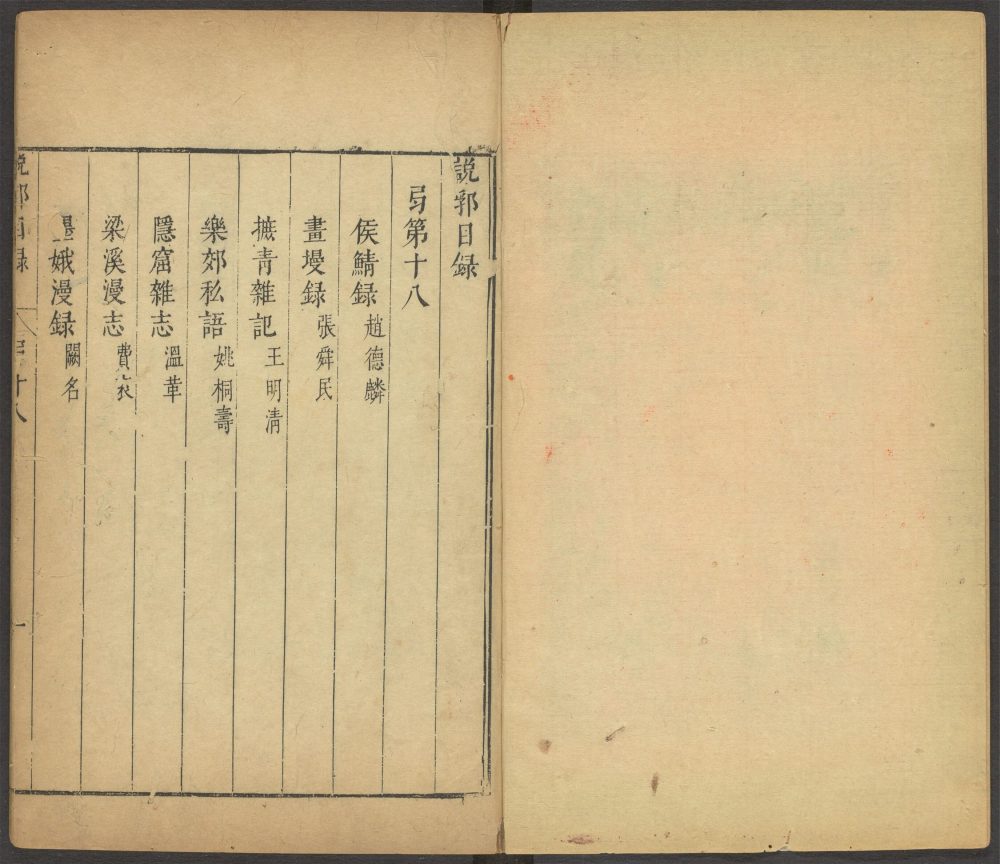 説郛目録
弓第十八
侯鯖録 趙德麟
畫墁録 張舜民
摭青雜記 王明清
樂郊私語 姚桐壽
隱窟雜志 溫革
梁溪漫志 費袞
墨娥漫録 闕名
説郛目録 十八 一